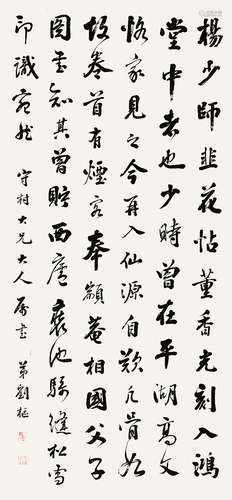 楊少師韭花帖董香光刻入鴻
堂中者也少時曾在平湖高文
恪家見之今再入仙源自歎凡骨如
故卷首有煙客奉顓菴相國父子
圖書知其曾貯西廬褒池騎縫松雪
印識宛然
守村大兄大人屬書 弟劉樞